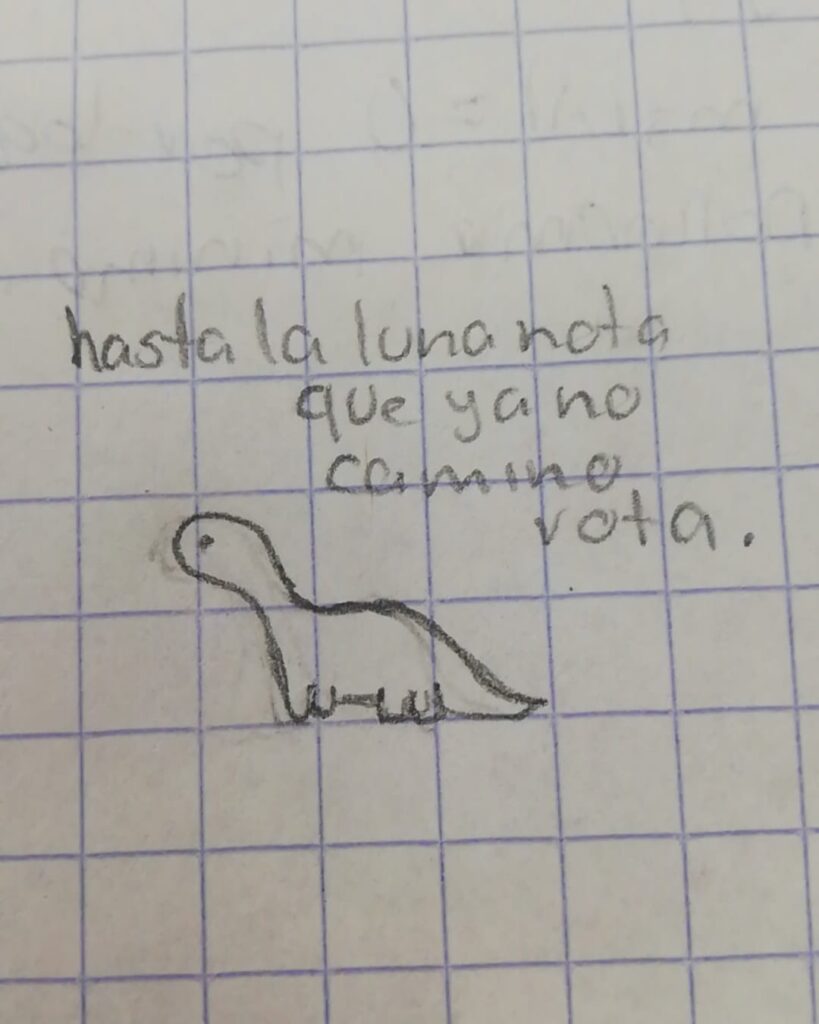 hasta la luna nota
que ya no
camino
rota.